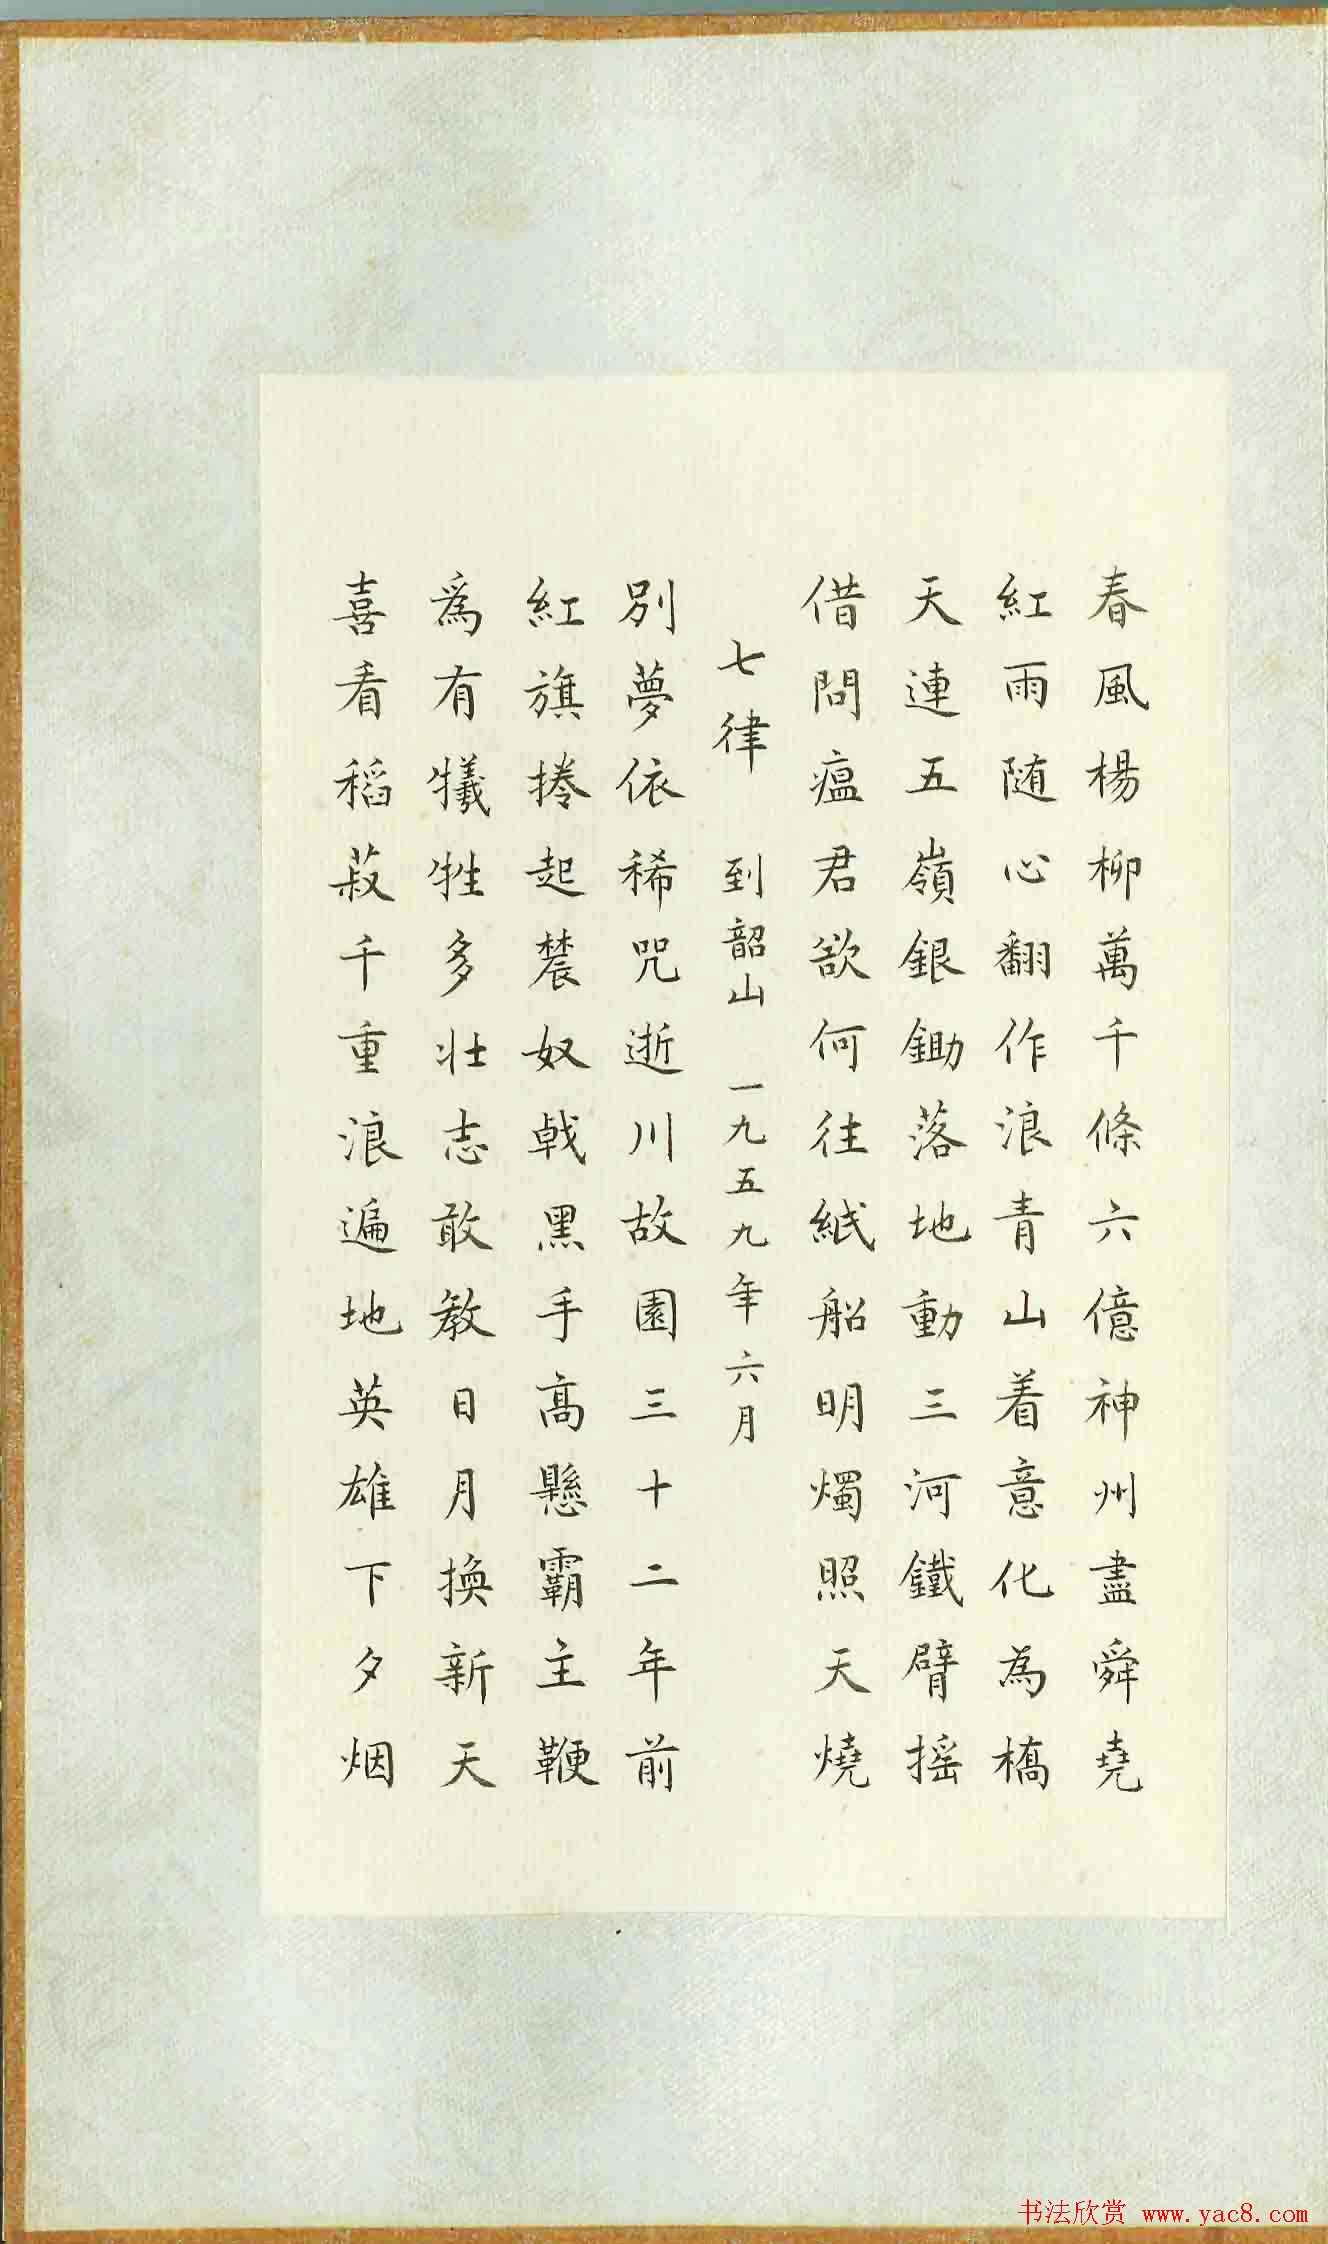 春風楊柳萬千條六億神州盡舜堯
紅雨随心翻作浪青山着意化為橋
天連五嶺銀鋤落地動三河鐵臂摇
借問瘟君欲何往紙船明燭照天燒
七律 到韶山 一九五九年六月
別夢依稀咒逝川故園三十二年前
紅旗捲起農奴戟黑手高懸霸主鞭
爲有犧牲多壮志敢教日月換新天
喜看稻菽千重浪遍地英雄下夕烟
书法欣赏 www.yac8.com